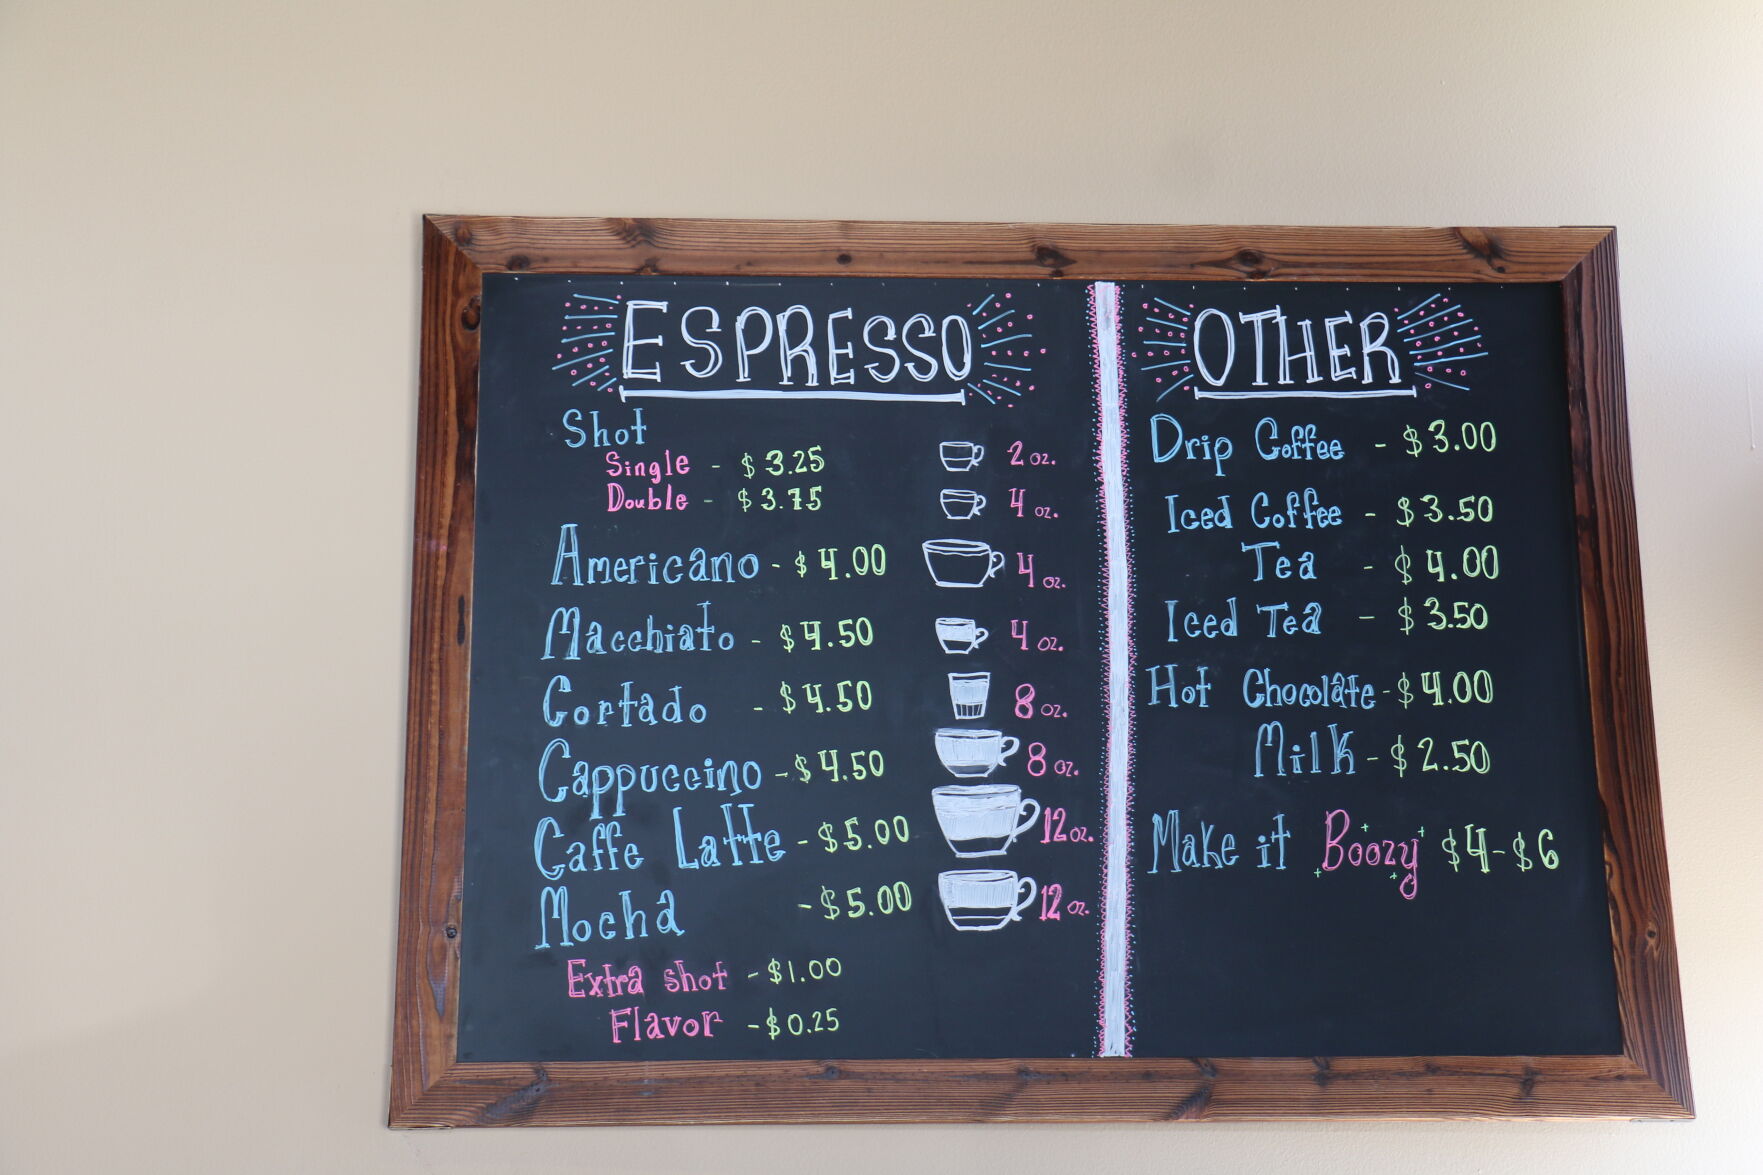 ESPRESSO
Shot
Single - $3.25 2 oz.
Double - $3.75 4 oz.
Americano - $4.00 4 oz.
Macchiato - $4.50 4 oz.
Cortado - $4.50 8 oz.
Cappuccino - $4.50 8 oz.
Caffe Latte - $5.00 12 oz.
Mocha - $5.00 12 oz.
Extra shot - $1.00
Flavor - $0.25
OTHER
Drip Coffee - $3.00
Iced Coffee - $3.50
Tea - $4.00
Iced Tea - $3.50
Hot Chocolate - $4.00
Milk - $2.50
Make it Boozy $4-$6